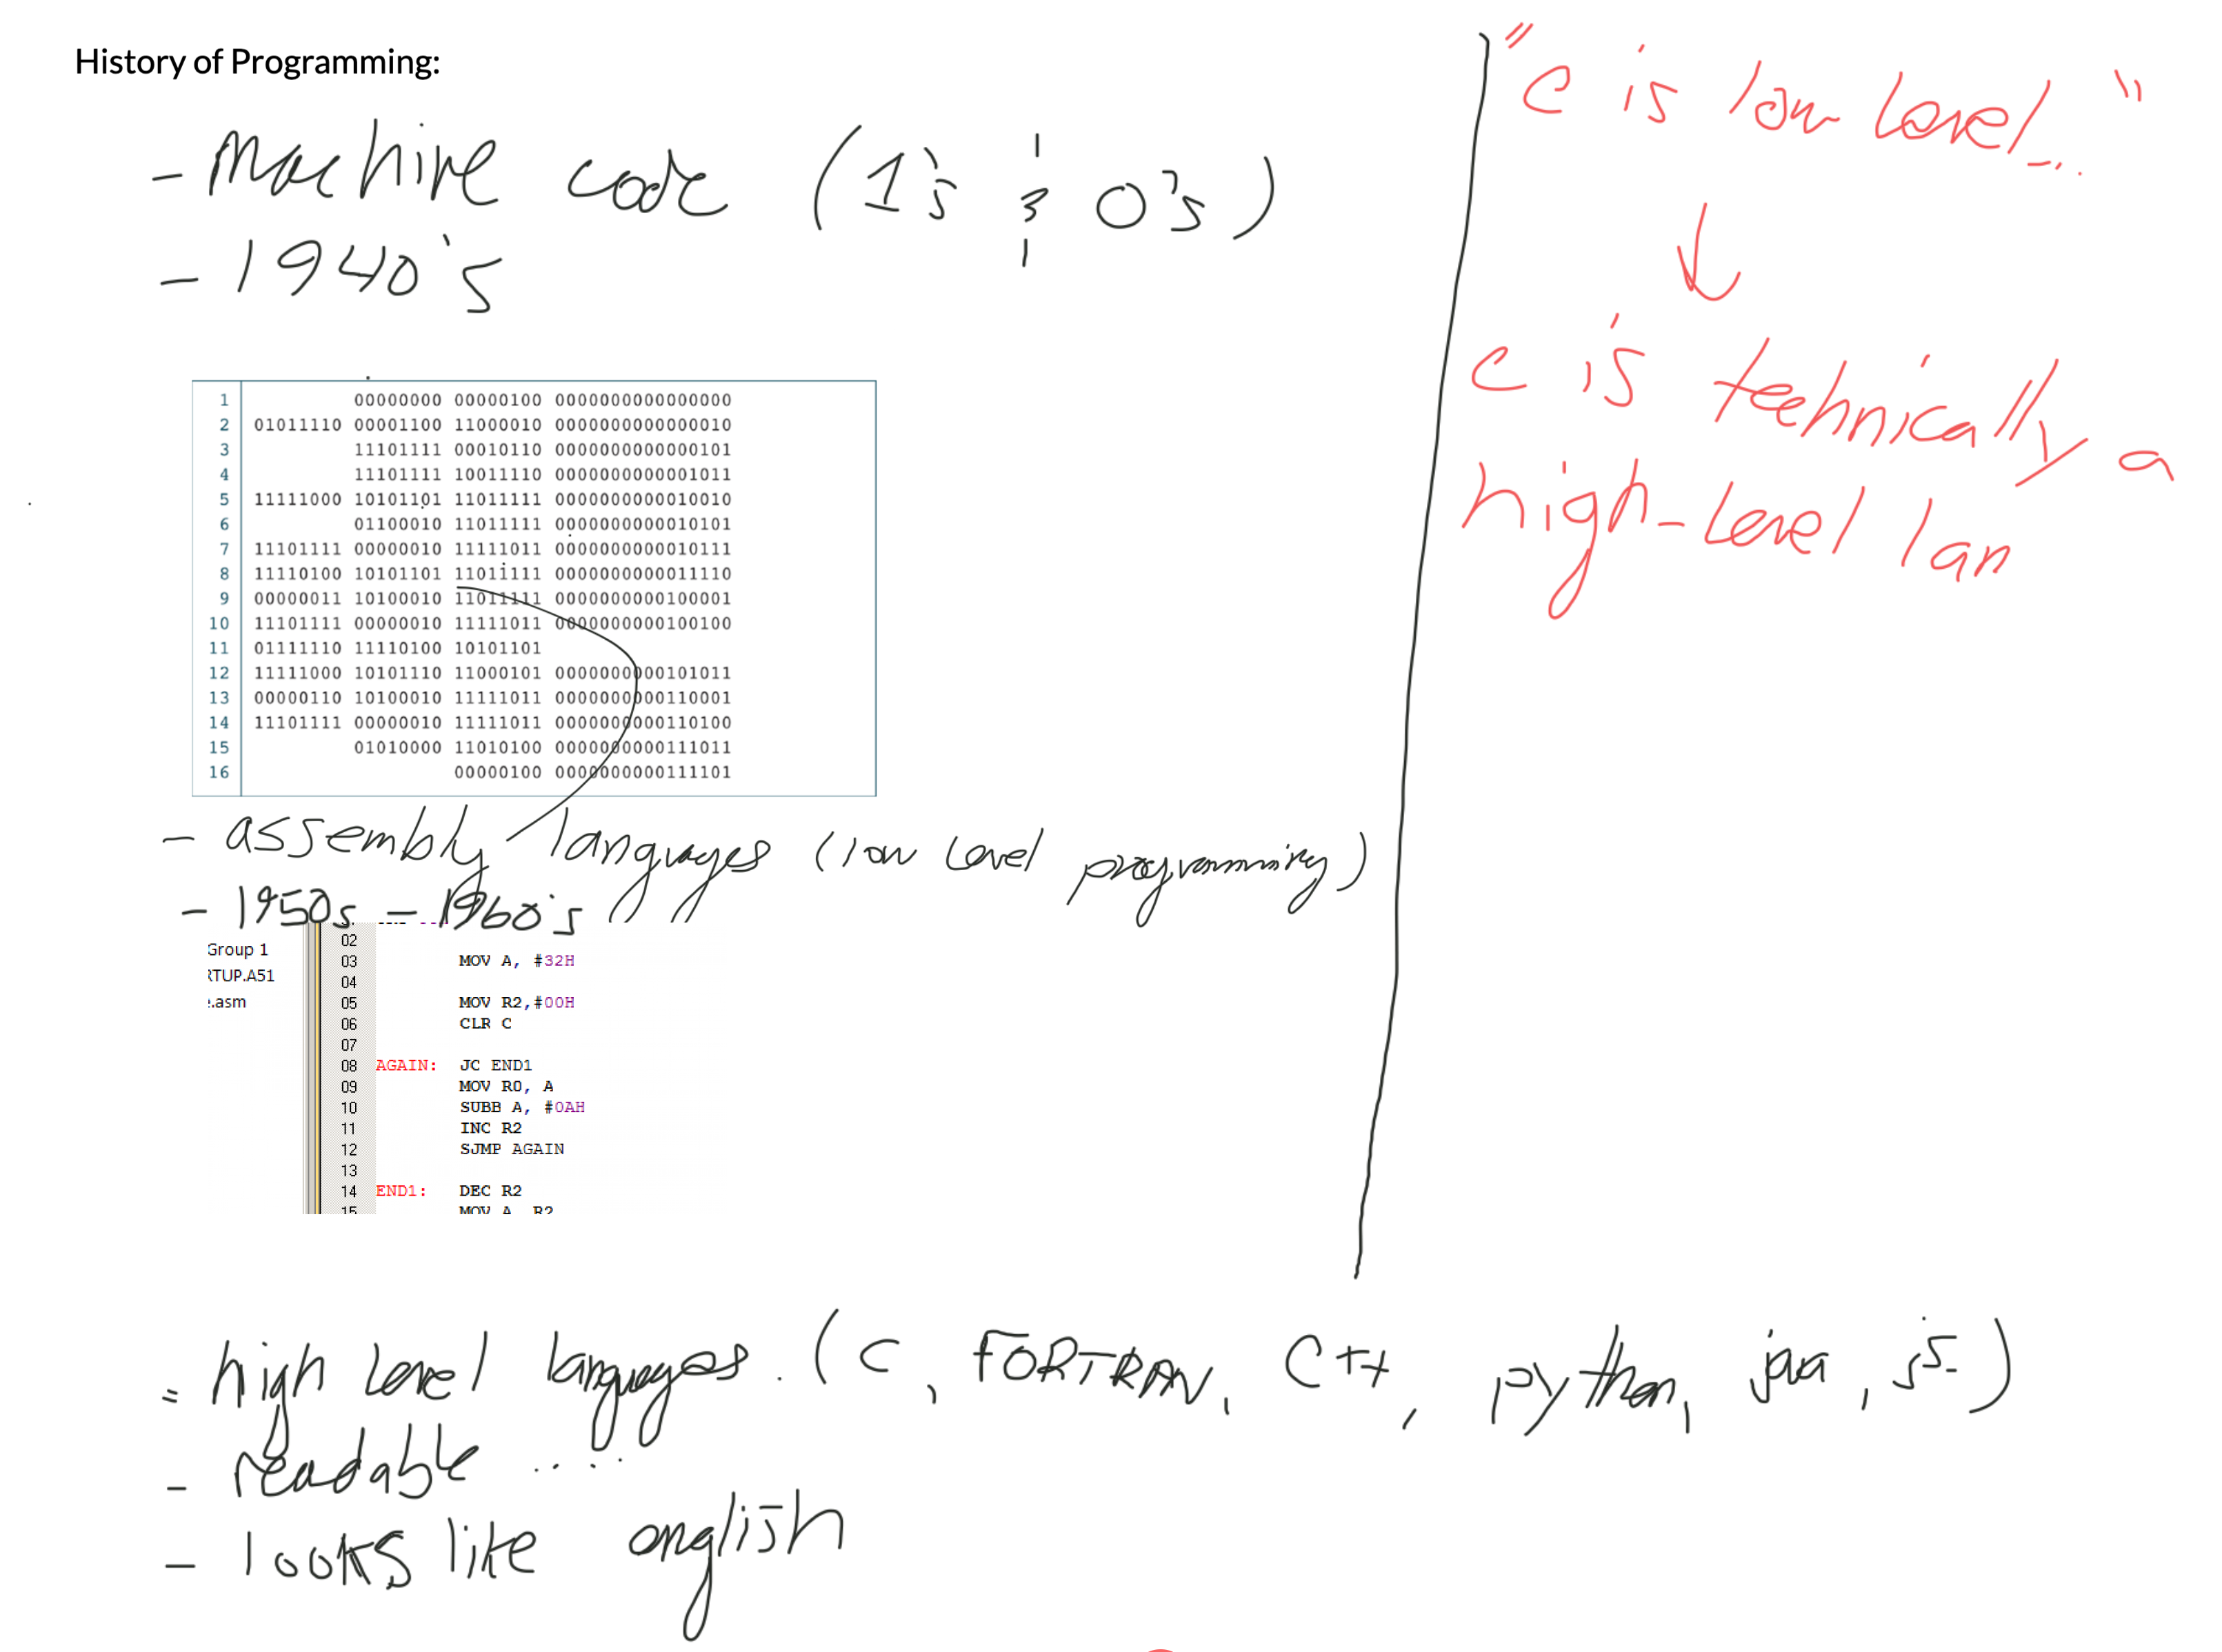 History of Programming:
- Machine code (1's & 0's)
- 1940's
1 00000000 00000100 0000000000000000
2 01011110 00001100 11000010 0000000000000010
3 11101111 00010110 0000000000000101
4 11101111 10011110 0000000000001011
5 11111000 10101101 11011111 0000000000010010
6 01100010 11011111 0000000000010101
7 11101111 00000010 11111011 0000000000010111
8 11110100 10101101 11011111 0000000000011110
9 00000011 10100010 11011111 0000000000100001
10 11101111 00000010 11111011 0000000000100100
11 01111110 11110100 10101101
12 11111000 10101110 11000101 0000000000101011
13 00000110 10100010 11111011 0000000000110001
14 11101111 00000010 11111011 0000000000110100
15 01010000 11010100 0000000000111011
16 00000100 0000000000111101
- assembly languages (low level programming)
- 1950s - 1960's
Group 1
RTUP.A51
.asm
02
03 MOV A, #32H
04
05 MOV R2,#00H
06 CLR C
07
08 AGAIN: JC END1
09 MOV R0, A
10 SUBB A, #0AH
11 INC R2
12 SJMP AGAIN
13
14 END1: DEC R2
15 MOV A R2
"C is low level..."
C is technically a
high-level lan
= high level languages. (C, FORTRAN, C++, python, java, js-)
- readable ....
- looks like english